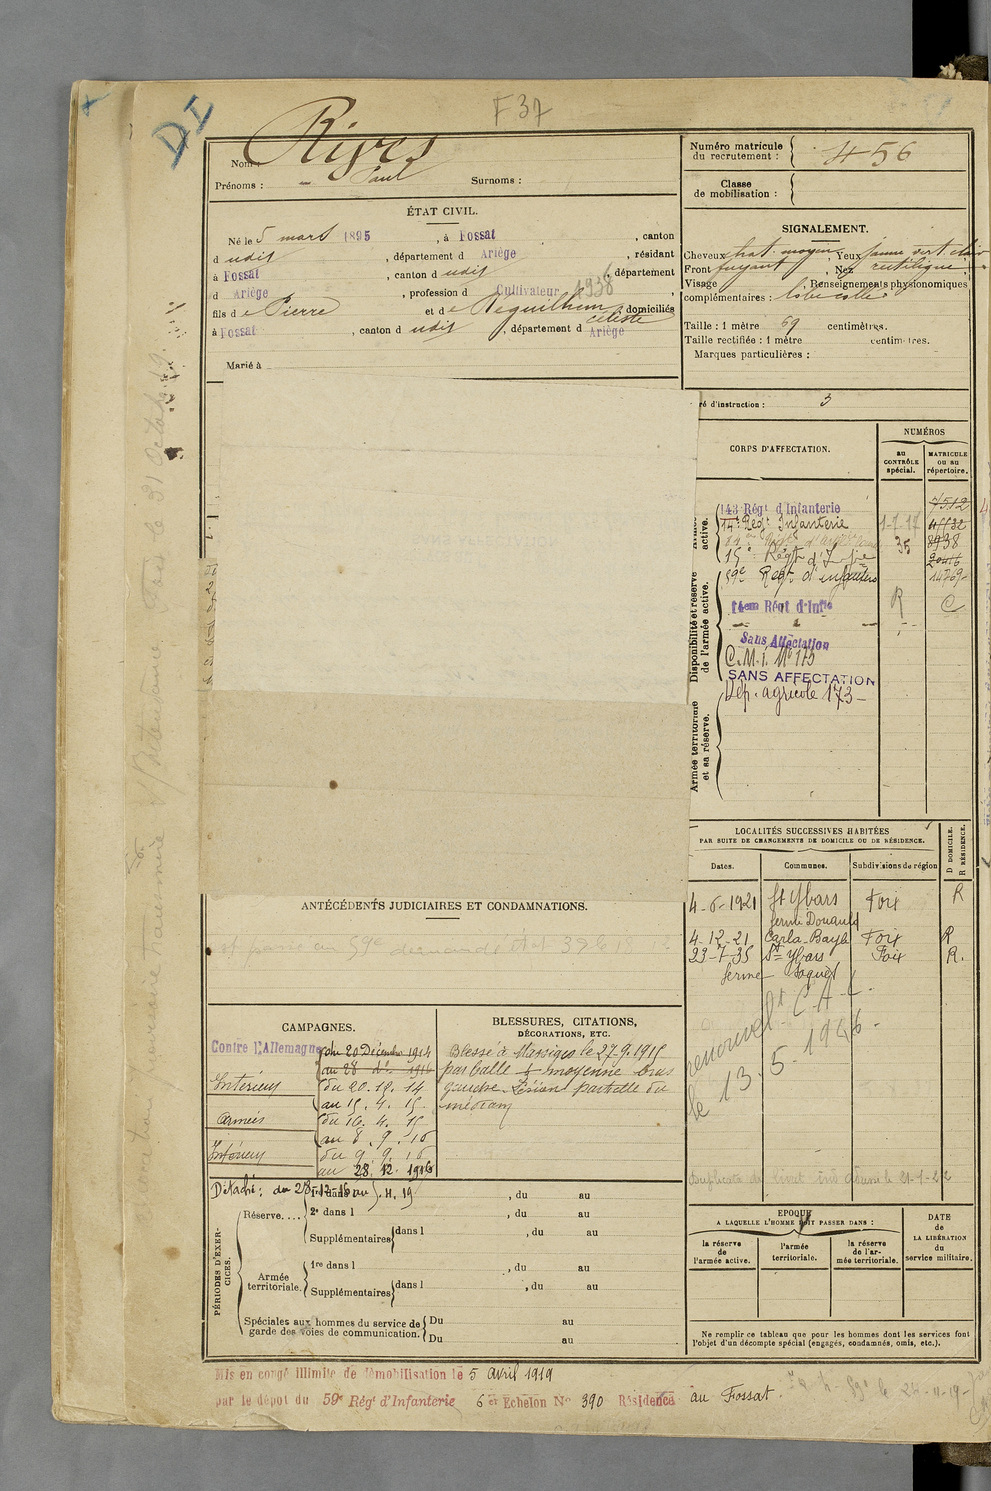 DI
F 37
Nom : Rives
Prénoms : Paul Surnoms :
ÉTAT CIVIL.
Né le 5 mars 1895, à Fossat, canton
d udit, département d Ariège, résidant
à Fossat, canton d udit, département
d Ariège, profession d Cultivateur 4938
fils de Pierre et de Reguilhem Céleste, domiciliés
à Fossat, canton d udit, département d Ariège
Marié à
Numéro matricule
du recrutement : 456
Classe
de mobilisation :
SIGNALEMENT.
Cheveux chat. moyen, Yeux jaune vert clair
Front fuyant, Nez rectiligne
Visage, Renseignements physionomiques
complémentaires :
Taille : 1 mètre 69 centimètres.
Taille rectifiée : 1 mètre centimètres.
Marques particulières :
ré d'instruction : 3
CORPS D'AFFECTATION.
NUMÉROS
au CONTRÔLE spécial.
MATRICULE ou au répertoire.
active.
143 Régt d'Infanterie 7512
14e Régt Infanterie 1-7-17
35 8938
15e Régt d'Infie
59e Régt d'infanterie 14769
Disponibilité et réserve de l'armée active.
14em Régt d'Infie R C
Sans Affectation
C.M.I. No 175
SANS AFFECTATION
Armée territoriale et sa réserve.
Dép. agricole 173
LOCALITÉS SUCCESSIVES HABITÉES
PAR SUITE DE CHANGEMENTS DE DOMICILE OU DE RÉSIDENCE.
Dates. Communes. Subdivisions de région D DOMICILE. R RÉSIDENCE.
4-6-1921 St Ybars Foix R
ferme Donauld
4-12-21 Carla-Bayle Foix R
23-7-35 St Ybars Foix R.
ferme
renouvelt C A C.
le 13.5.1946.
ANTÉCÉDENTS JUDICIAIRES ET CONDAMNATIONS.
CAMPAGNES.
Contre l'Allemagne du 20 Décembre 1914
au 28 dc 1916
Intérieur du 20.12.14
au 15.4.15
Armées du 16.4.15
au 8.9.16
Intérieur du 9.9.16
au 28.12.1916
BLESSURES, CITATIONS,
DÉCORATIONS, ETC.
Blessé à Massiges le 27-9-1915
par balle moyenne bras
gauche. Lésion partielle du
médian
Détaché : du 28-12-16 au
PÉRIODES D'EXERCICES.
Réserve....
1re dans l, du au
2e dans l, du au
Supplémentaires dans l, du au
Armée territoriale.
1re dans l, du au
Supplémentaires dans l, du au
Spéciales aux hommes du service de
garde des voies de communication.
Du au
Du au
Duplicata du livret
EPOQUE
A LAQUELLE L'HOMME DOIT PASSER DANS :
la réserve de l'armée active.
l'armée territoriale.
la réserve de l'armée territoriale.
DATE
de
LA LIBÉRATION
du
service militaire.
Ne remplir ce tableau que pour les hommes dont les services font
l'objet d'un décompte spécial (engagés, condamnés, omis, etc.).
Mis en congé illimité de démobilisation le 5 avril 1919
par le dépôt du 59e Régt d'Infanterie 6e Echelon No 390 Résidence au Fossat.